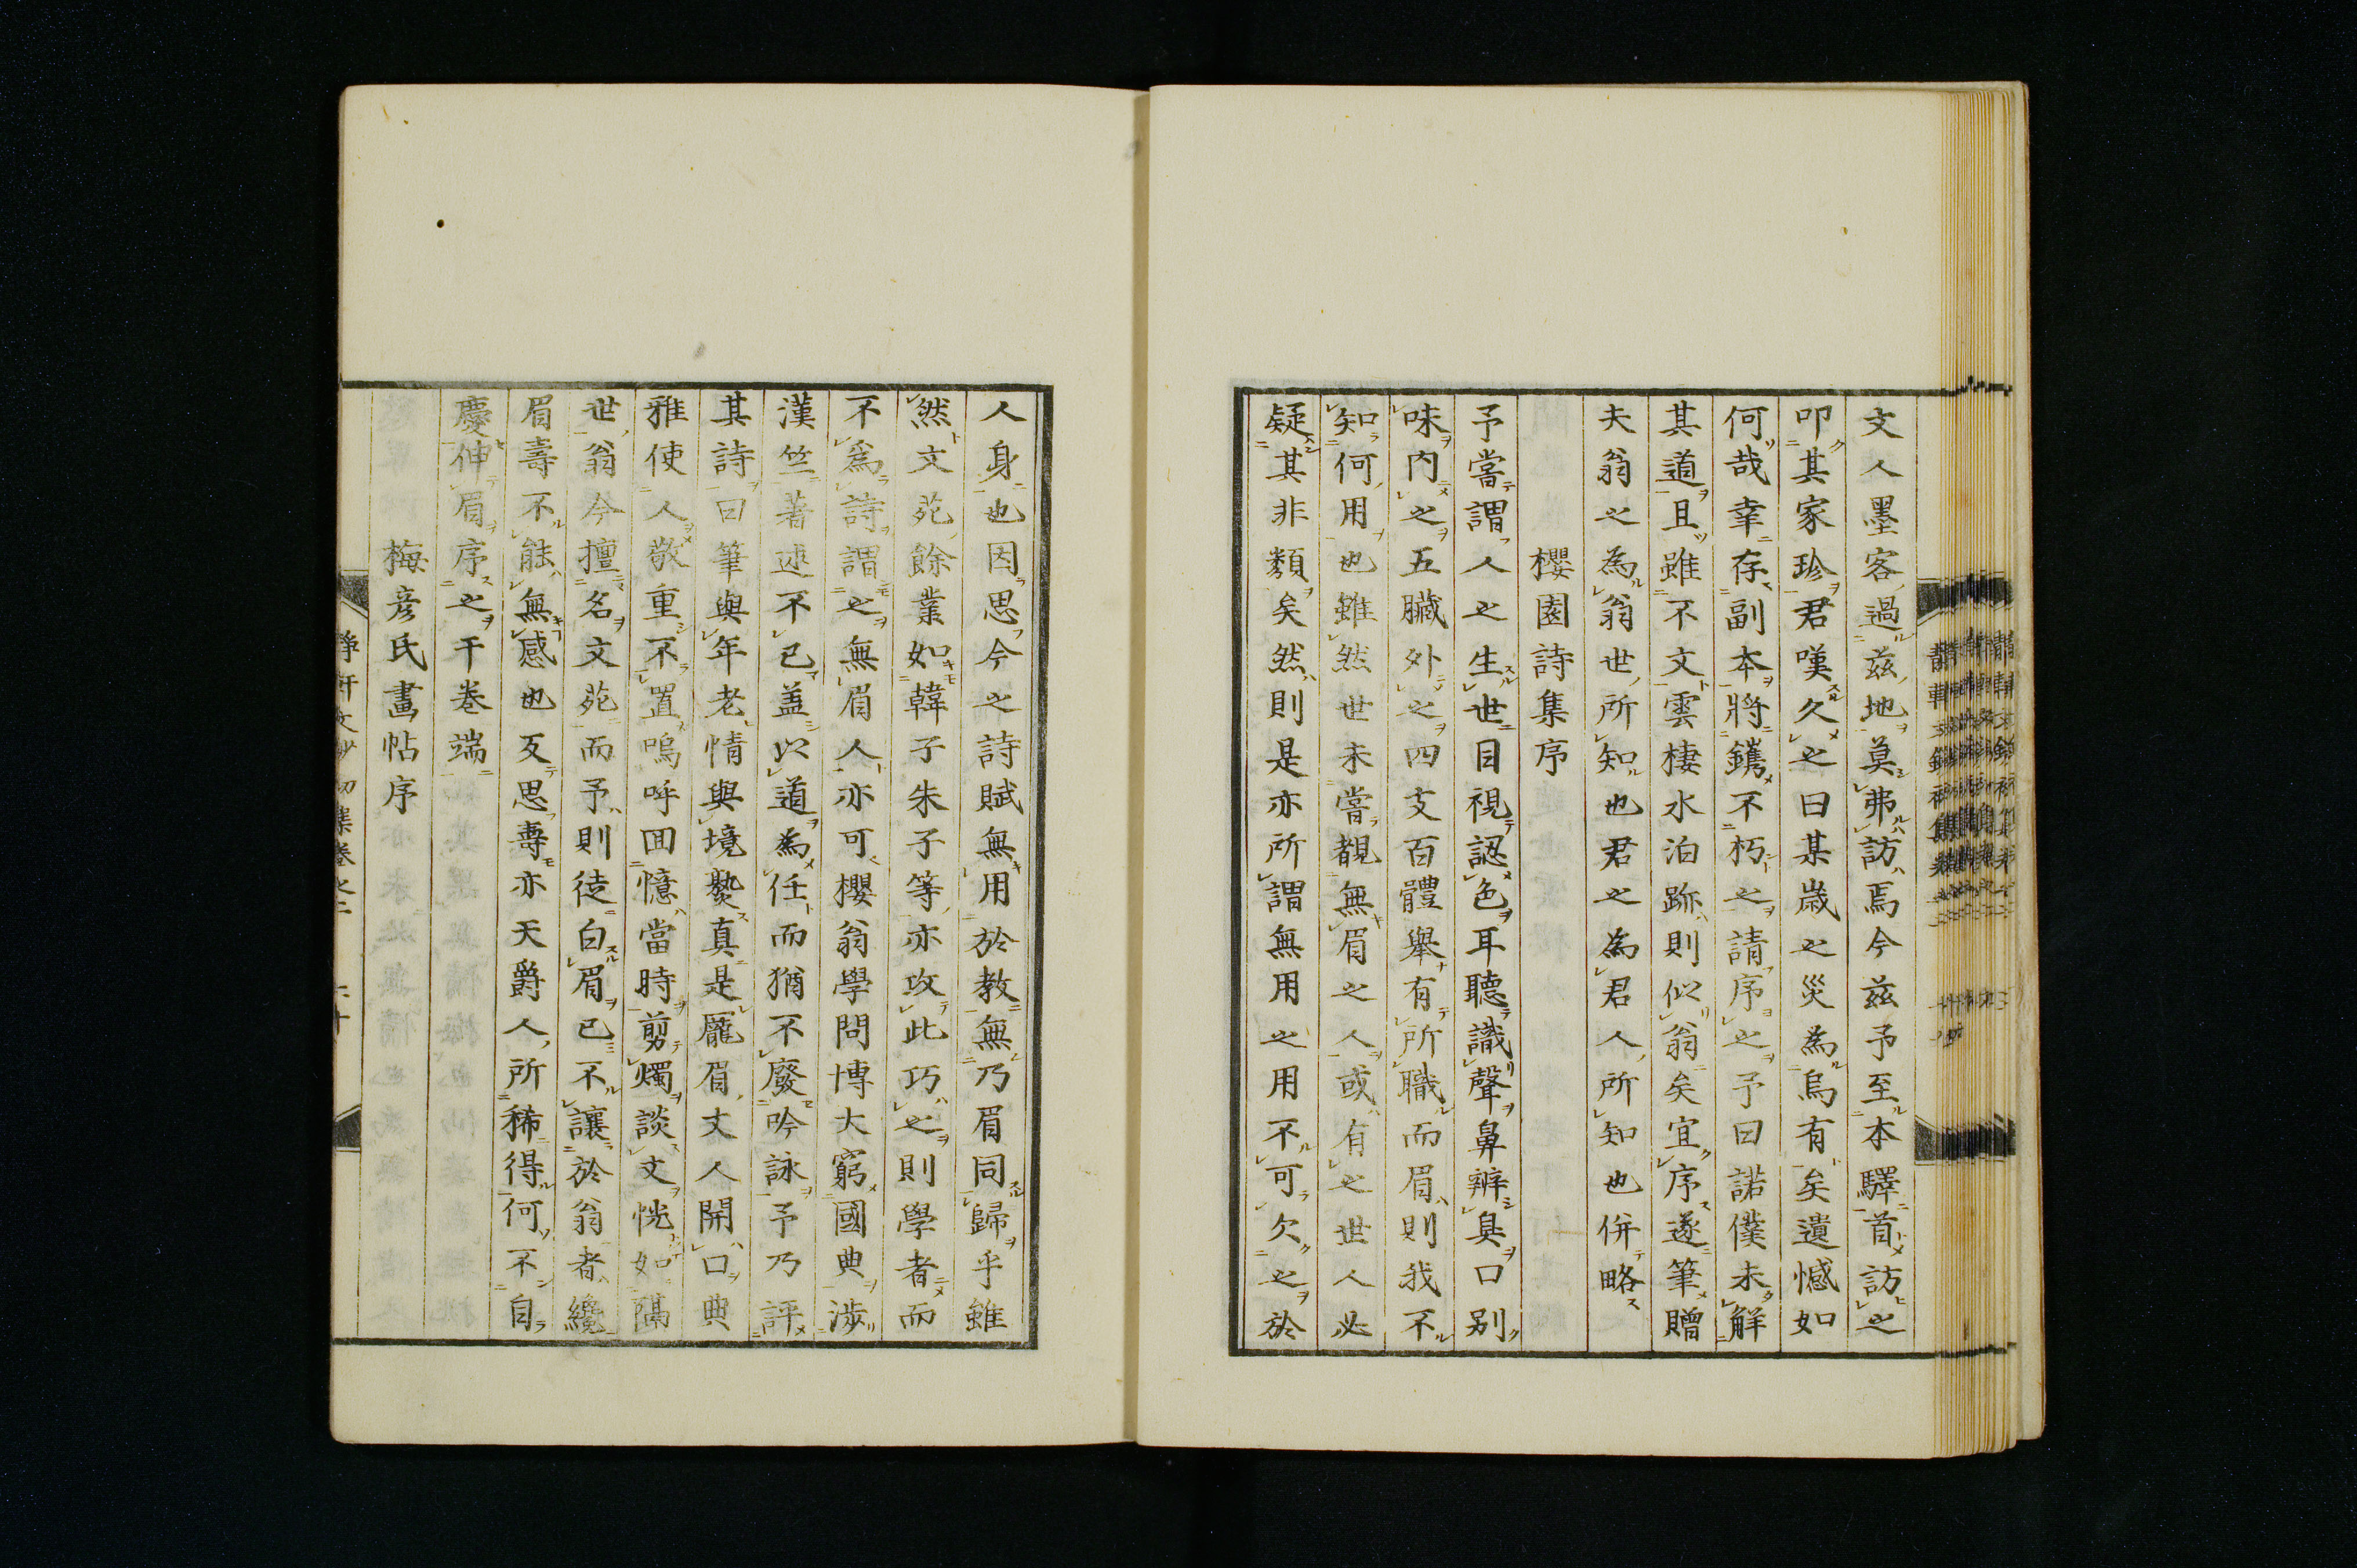 文人墨客過茲地莫弗訪焉今茲予至本驛首訪之
叩其家珍君嘆久之曰某歲之災為烏有矣遺憾如
何哉幸存副本將鐫不朽之請序之予曰諾僕未解
其道且雖不文雲棲水泊跡則似翁矣宜序遂筆贈
夫翁之為翁世所知也君之為君人所知也併略
櫻園詩集序
予嘗謂人之生世目視認色耳聽識聲鼻辨臭口別
味內之五臟外之四支百體舉有所職而眉則我不
知何用也雖然世未嘗覩無眉之人或有之世人必
疑其非類矣然則是亦所謂無用之用不可欠之於
人身也因思今之詩賦無用於教無乃眉同歸乎雖
然文苑餘業如韓子朱子等亦攻此巧之則學者而
不為詩謂之無眉人亦可櫻翁學問博大窮國典涉
漢竺著述不已蓋以道為任而猶不廢吟詠予乃評
其詩曰筆與年老情與境爇真是龐眉丈人開口典
雅使人敬重不置嗚呼回憶當時剪燭談文恍如隔
世翁今擅名文苑而予則徒白眉已不讓於翁者纔
眉壽不能無感也反思壽亦天爵人所稀得何不自
慶伸眉序之于卷端
梅彥氏畫帖序
靜軒文鈔初集卷之二